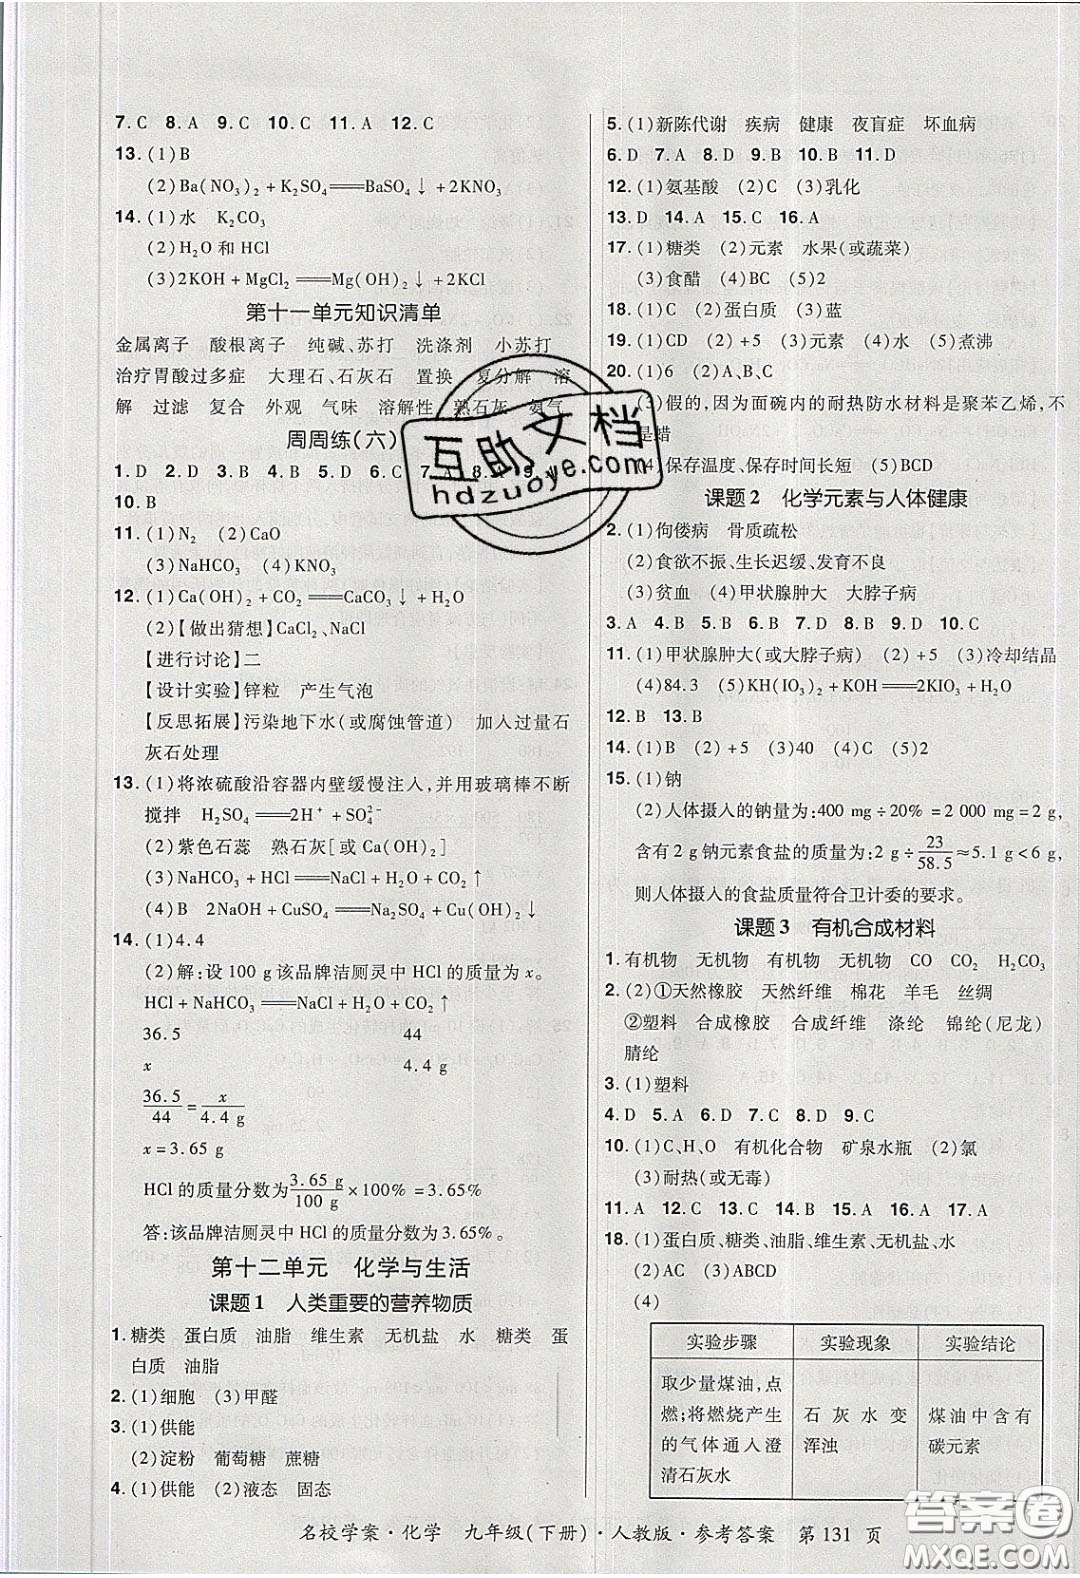 7. C　8. A　9. C　10. C　11. A　12. C
13. (1)B
(2)Ba(NO₃)₂ + K₂SO₄══BaSO₄↓ + 2KNO₃
14. (1)水　K₂CO₃
(2)H₂O 和 HCl
(3)2KOH + MgCl₂══Mg(OH)₂↓ + 2KCl
第十一单元知识清单
金属离子　酸根离子　纯碱、苏打　洗涤剂　小苏打
治疗胃酸过多症　大理石、石灰石　置换　复分解　溶
解　过滤　复合　外观　气味　溶解性　熟石灰　氨气
周周练(六)
1. D　2. D　3. B　4. B　5. D　6. C　7. A　8. A　9. A
10. B
11. (1)N₂　(2)CaO
(3)NaHCO₃　(4)KNO₃
12. (1)Ca(OH)₂ + CO₂══CaCO₃↓ + H₂O
(2)【做出猜想】CaCl₂、NaCl
【进行讨论】二
【设计实验】锌粒　产生气泡
【反思拓展】污染地下水(或腐蚀管道)　加入过量石
灰石处理
13. (1)将浓硫酸沿容器内壁缓慢注入,并用玻璃棒不断
搅拌　H₂SO₄══2H⁺ + SO₄²⁻
(2)紫色石蕊　熟石灰[或 Ca(OH)₂]
(3)NaHCO₃ + HCl══NaCl + H₂O + CO₂↑
(4)B　2NaOH + CuSO₄══Na₂SO₄ + Cu(OH)₂↓
14. (1)4.4
(2)解:设 100 g 该品牌洁厕灵中 HCl 的质量为 x。
HCl + NaHCO₃══NaCl + H₂O + CO₂↑
36.5　44
x　4.4 g
36.5/44 = x/4.4 g
x = 3.65 g
HCl 的质量分数为 3.65 g/100 g × 100% = 3.65%
答:该品牌洁厕灵中 HCl 的质量分数为 3.65%。
第十二单元　化学与生活
课题 1　人类重要的营养物质
1. 糖类　蛋白质　油脂　维生素　无机盐　水　糖类　蛋
白质　油脂
2. (1)细胞　(3)甲醛
3. (1)供能
(2)淀粉　葡萄糖　蔗糖
4. (1)供能　(2)液态　固态
5. (1)新陈代谢　疾病　健康　夜盲症　坏血病
6. D　7. A　8. D　9. B　10. B　11. D
12. (1)氨基酸　(2)C　(3)乳化
13. D　14. A　15. C　16. A
17. (1)糖类　(2)元素　水果(或蔬菜)
(3)食醋　(4)BC　(5)2
18. (1)C　(2)蛋白质　(3)蓝
19. (1)CD　(2) +5　(3)元素　(4)水　(5)煮沸
20. (1)6　(2)A、B、C
(3)假的,因为面碗内的耐热防水材料是聚苯乙烯,不
是蜡
(4)保存温度、保存时间长短　(5)BCD
课题 2　化学元素与人体健康
2. (1)佝偻病　骨质疏松
(2)食欲不振、生长迟缓、发育不良
(3)贫血　(4)甲状腺肿大　大脖子病
3. A　4. B　5. B　6. C　7. B　8. B　9. D　10. C
11. (1)甲状腺肿大(或大脖子病)　(2) +5　(3)冷却结晶
(4)84.3　(5)KH(IO₃)₂ + KOH══2KIO₃ + H₂O
12. B　13. B
14. (1)B　(2) +5　(3)40　(4)C
15. (1)钠
(2)人体摄入的钠量为:400 mg ÷ 20% = 2 000 mg = 2 g,
含有 2 g 钠元素食盐的质量为:2 g ÷ 23/58.5 ≈ 5.1 g < 6 g,
则人体摄入的食盐质量符合卫计委的要求。
课题 3　有机合成材料
1. 有机物　无机物　有机物　无机物　CO　CO₂　H₂CO₃
2. (2)①天然橡胶　天然纤维　棉花　羊毛　丝绸
②塑料　合成橡胶　合成纤维　涤纶　锦纶(尼龙)
腈纶
3. (1)塑料
4. D　5. A　6. D　7. C　8. D　9. C
10. (1)C、H、O　有机化合物　矿泉水瓶　(2)氯
(3)耐热(或无毒)
11. A　12. C　13. C　14. B　15. B　16. A　17. A
18. (1)蛋白质、糖类、油脂、维生素、无机盐、水
(2)AC　(3)ABCD
(4)
实验步骤　实验现象　实验结论
取少量煤油,点
燃;将燃烧产生　石灰水变　煤油中含有
的气体通入澄　浑浊　碳元素
清石灰水
名校学案·化学　九年级(下册)·人教版·参考答案　第 131 页
互助文档
hdzuoye.com
答案圈
MXQE.COM